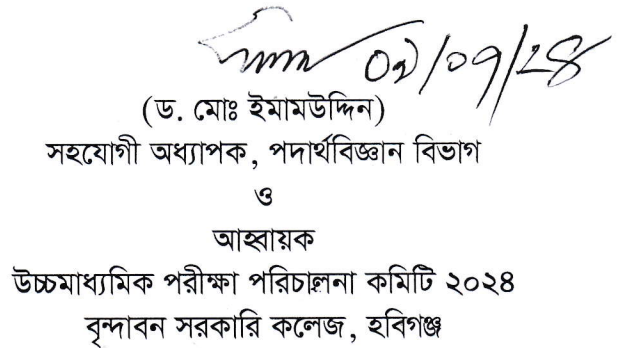 ০২/০৭/২৪
(ড. মোঃ ইমামউদ্দিন)
সহযোগী অধ্যাপক, পদার্থবিজ্ঞান বিভাগ
ও
আহ্বায়ক
উচ্চমাধ্যমিক পরীক্ষা পরিচালনা কমিটি ২০২৪
বৃন্দাবন সরকারি কলেজ, হবিগঞ্জ